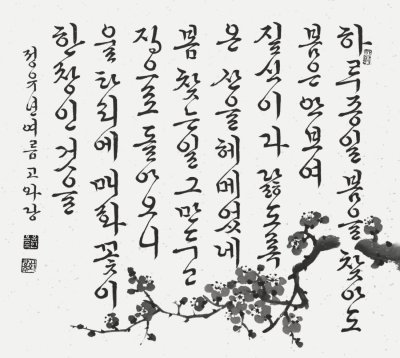 하루종일 봄을 찾아도
봄은 안보여
짚신이 다 닳도록
온 산을 헤메였네
봄 찾는일 그만두고
집으로 돌아오니
울타리에 매화꽃이
한창인 것을
정유년여름 고와랑